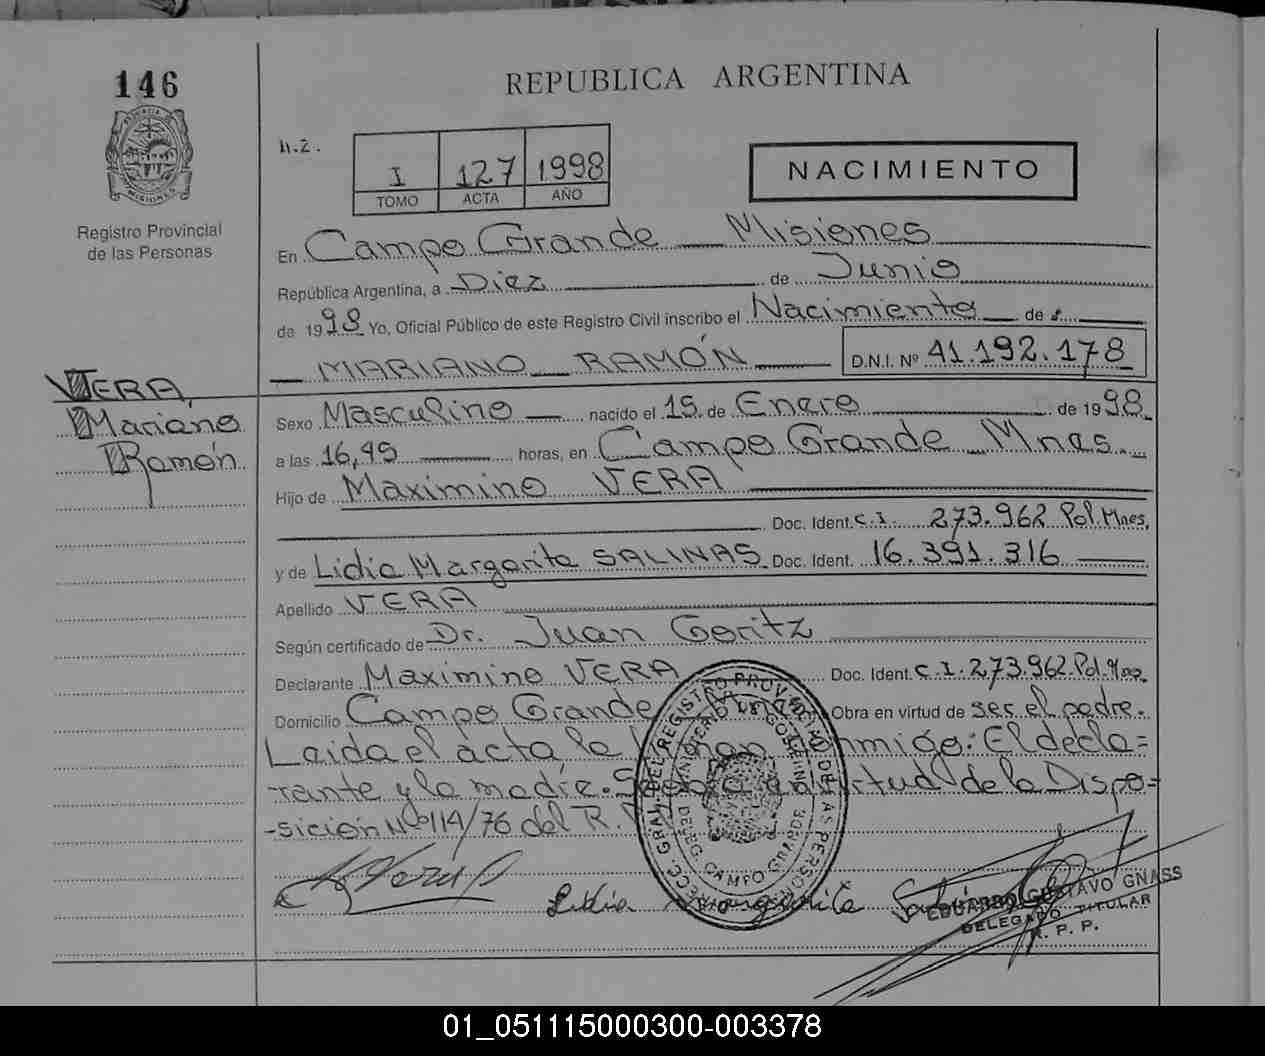 146
REPUBLICA ARGENTINA
PROVINCIA DE MISIONES
Registro Provincial
de las Personas
I 127 1998
TOMO ACTA AÑO
NACIMIENTO
En Campo Grande Misiones
República Argentina, a Diez de Junio
de 1998 Yo, Oficial Público de este Registro Civil inscribo el Nacimiento de
MARIANO RAMÓN D.N.I. Nº 41.192.178
VERA,
Mariano
Ramón
Sexo Masculino nacido el 15 de Enero de 1998
a las 16,45 horas, en Campo Grande Mnes.
Hijo de Maximino VERA
Doc. Ident. C.I. 273.962 Pol. Mnes.
y de Lidia Margarita SALINAS Doc. Ident. 16.391.316
Apellido VERA
Según certificado de Dr. Juan Goritz
Declarante Maximino VERA Doc. Ident. C.I. 273.962. Pol. Mnes.
Domicilio Campo Grande Obra en virtud de ser el padre.
Leída el acta la firman conmigo: El decla=
rante y la madre. en virtud de la Dispo-
-sición Nº 114/76 del R.
DIRECC. GRAL. DEL REGISTRO PROVINCIAL DE LAS PERSONAS
MINISTERIO DE GOBIERNO
DELEG. CAMPO GRANDE
Lidia Margarita Salinas
EDUARDO GUSTAVO GNASS
DELEGADO TITULAR
R. P. P.
01_051115000300-003378